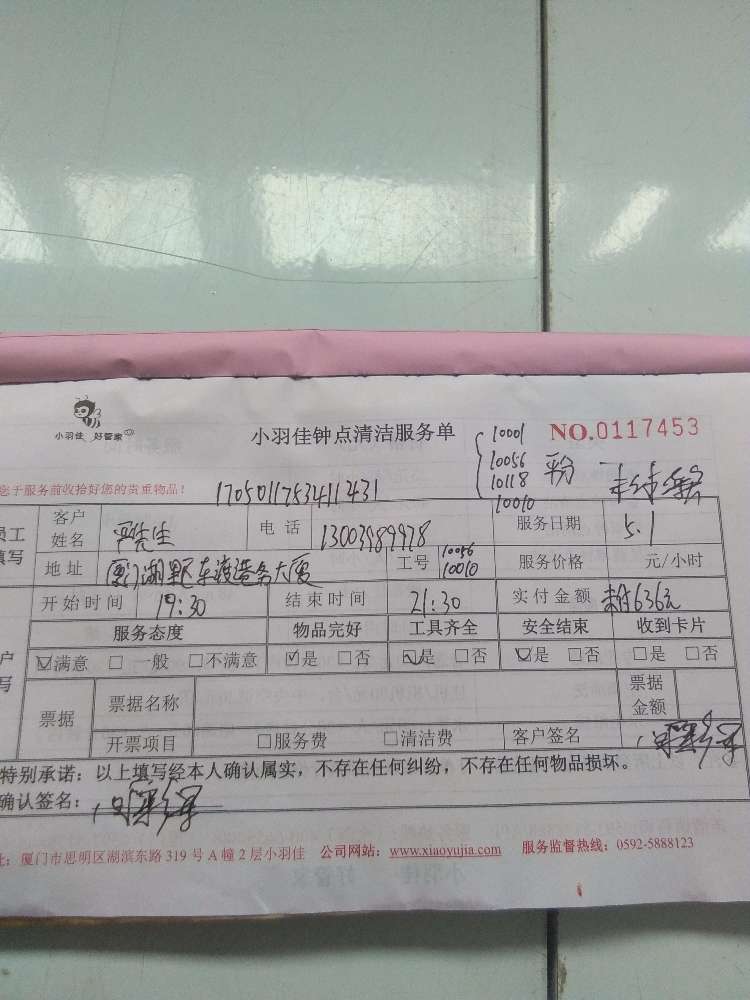 小羽佳 好管家
小羽佳钟点清洁服务单
10001
10056
10118
10010
NO.0117453
您于服务前收拾好您的贵重物品!
170501175341 1431
员工填写
客户姓名 严先生 电话 13003989978 服务日期 5.1
地址 厦门湖里区东渡港务大厦 工号 10056 10010 服务价格 元/小时
开始时间 19:30 结束时间 21:30 实付金额 未付636元
服务态度 物品完好 工具齐全 安全结束 收到卡片
☑满意 □一般 □不满意 ☑是 □否 ☑是 □否 ☑是 □否 □是 □否
户写
票据 票据名称 票据金额
开票项目 □服务费 □清洁费 客户签名
特别承诺:以上填写经本人确认属实,不存在任何纠纷,不存在任何物品损坏。
确认签名:
址:厦门市思明区湖滨东路319号A幢2层小羽佳 公司网站:www.xiaoyujia.com 服务监督热线:0592-5888123